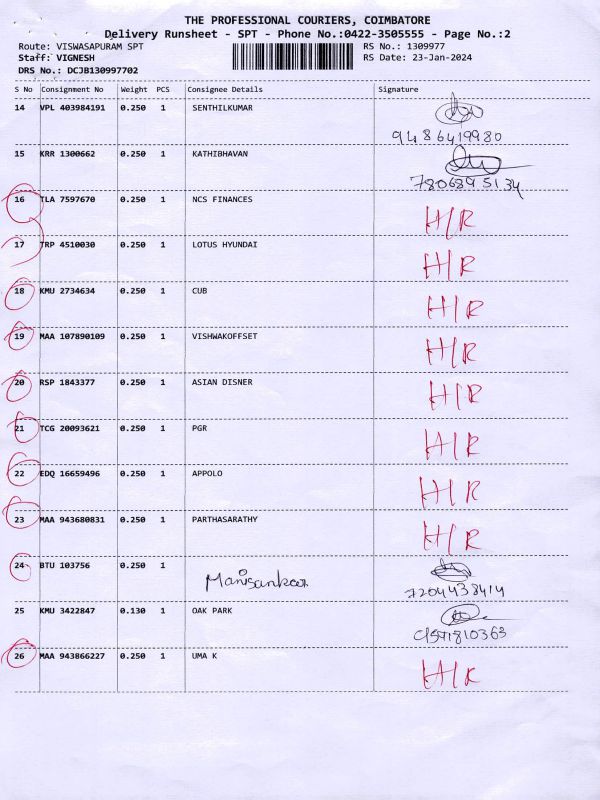 THE PROFESSIONAL COURIERS, COIMBATORE
Delivery Runsheet - SPT - Phone No.:0422-3505555 - Page No.:2
Route: VISWASAPURAM SPT RS No.: 1309977
Staff: VIGNESH RS Date: 23-Jan-2024
DRS No.: DCJB130997702
S No Consignment No Weight PCS Consignee Details Signature
14 VPL 403984191 0.250 1 SENTHILKUMAR
9486419980
15 KRR 1300662 0.250 1 KATHIBHAVAN
7806895134
16 TLA 7597670 0.250 1 NCS FINANCES
H/R
17 TRP 4510030 0.250 1 LOTUS HYUNDAI
H/R
18 KMU 2734634 0.250 1 CUB
H/R
19 MAA 107890109 0.250 1 VISHWAKOFFSET
H/R
20 RSP 1843377 0.250 1 ASIAN DISNER
H/R
21 TCG 20093621 0.250 1 PGR
H/R
22 EDQ 16659496 0.250 1 APPOLO
H/R
23 MAA 943680831 0.250 1 PARTHASARATHY
H/R
24 BTU 103756 0.250 1
7204438414
25 KMU 3422847 0.130 1 OAK PARK
26 MAA 943866227 0.250 1 UMA K
H/R